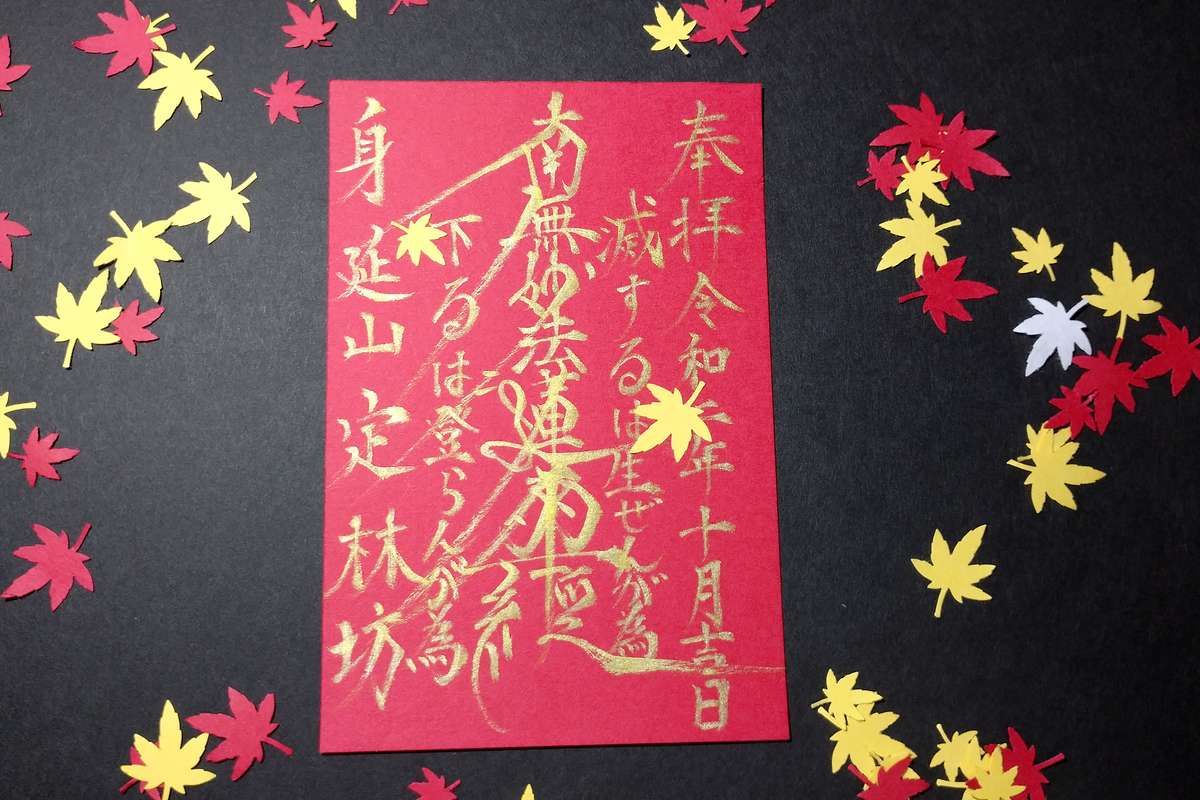 奉拝 令和六年十月吉日
滅するは生ぜんが為
南無妙法蓮華経
下るは登らんが為
身延山 定林坊